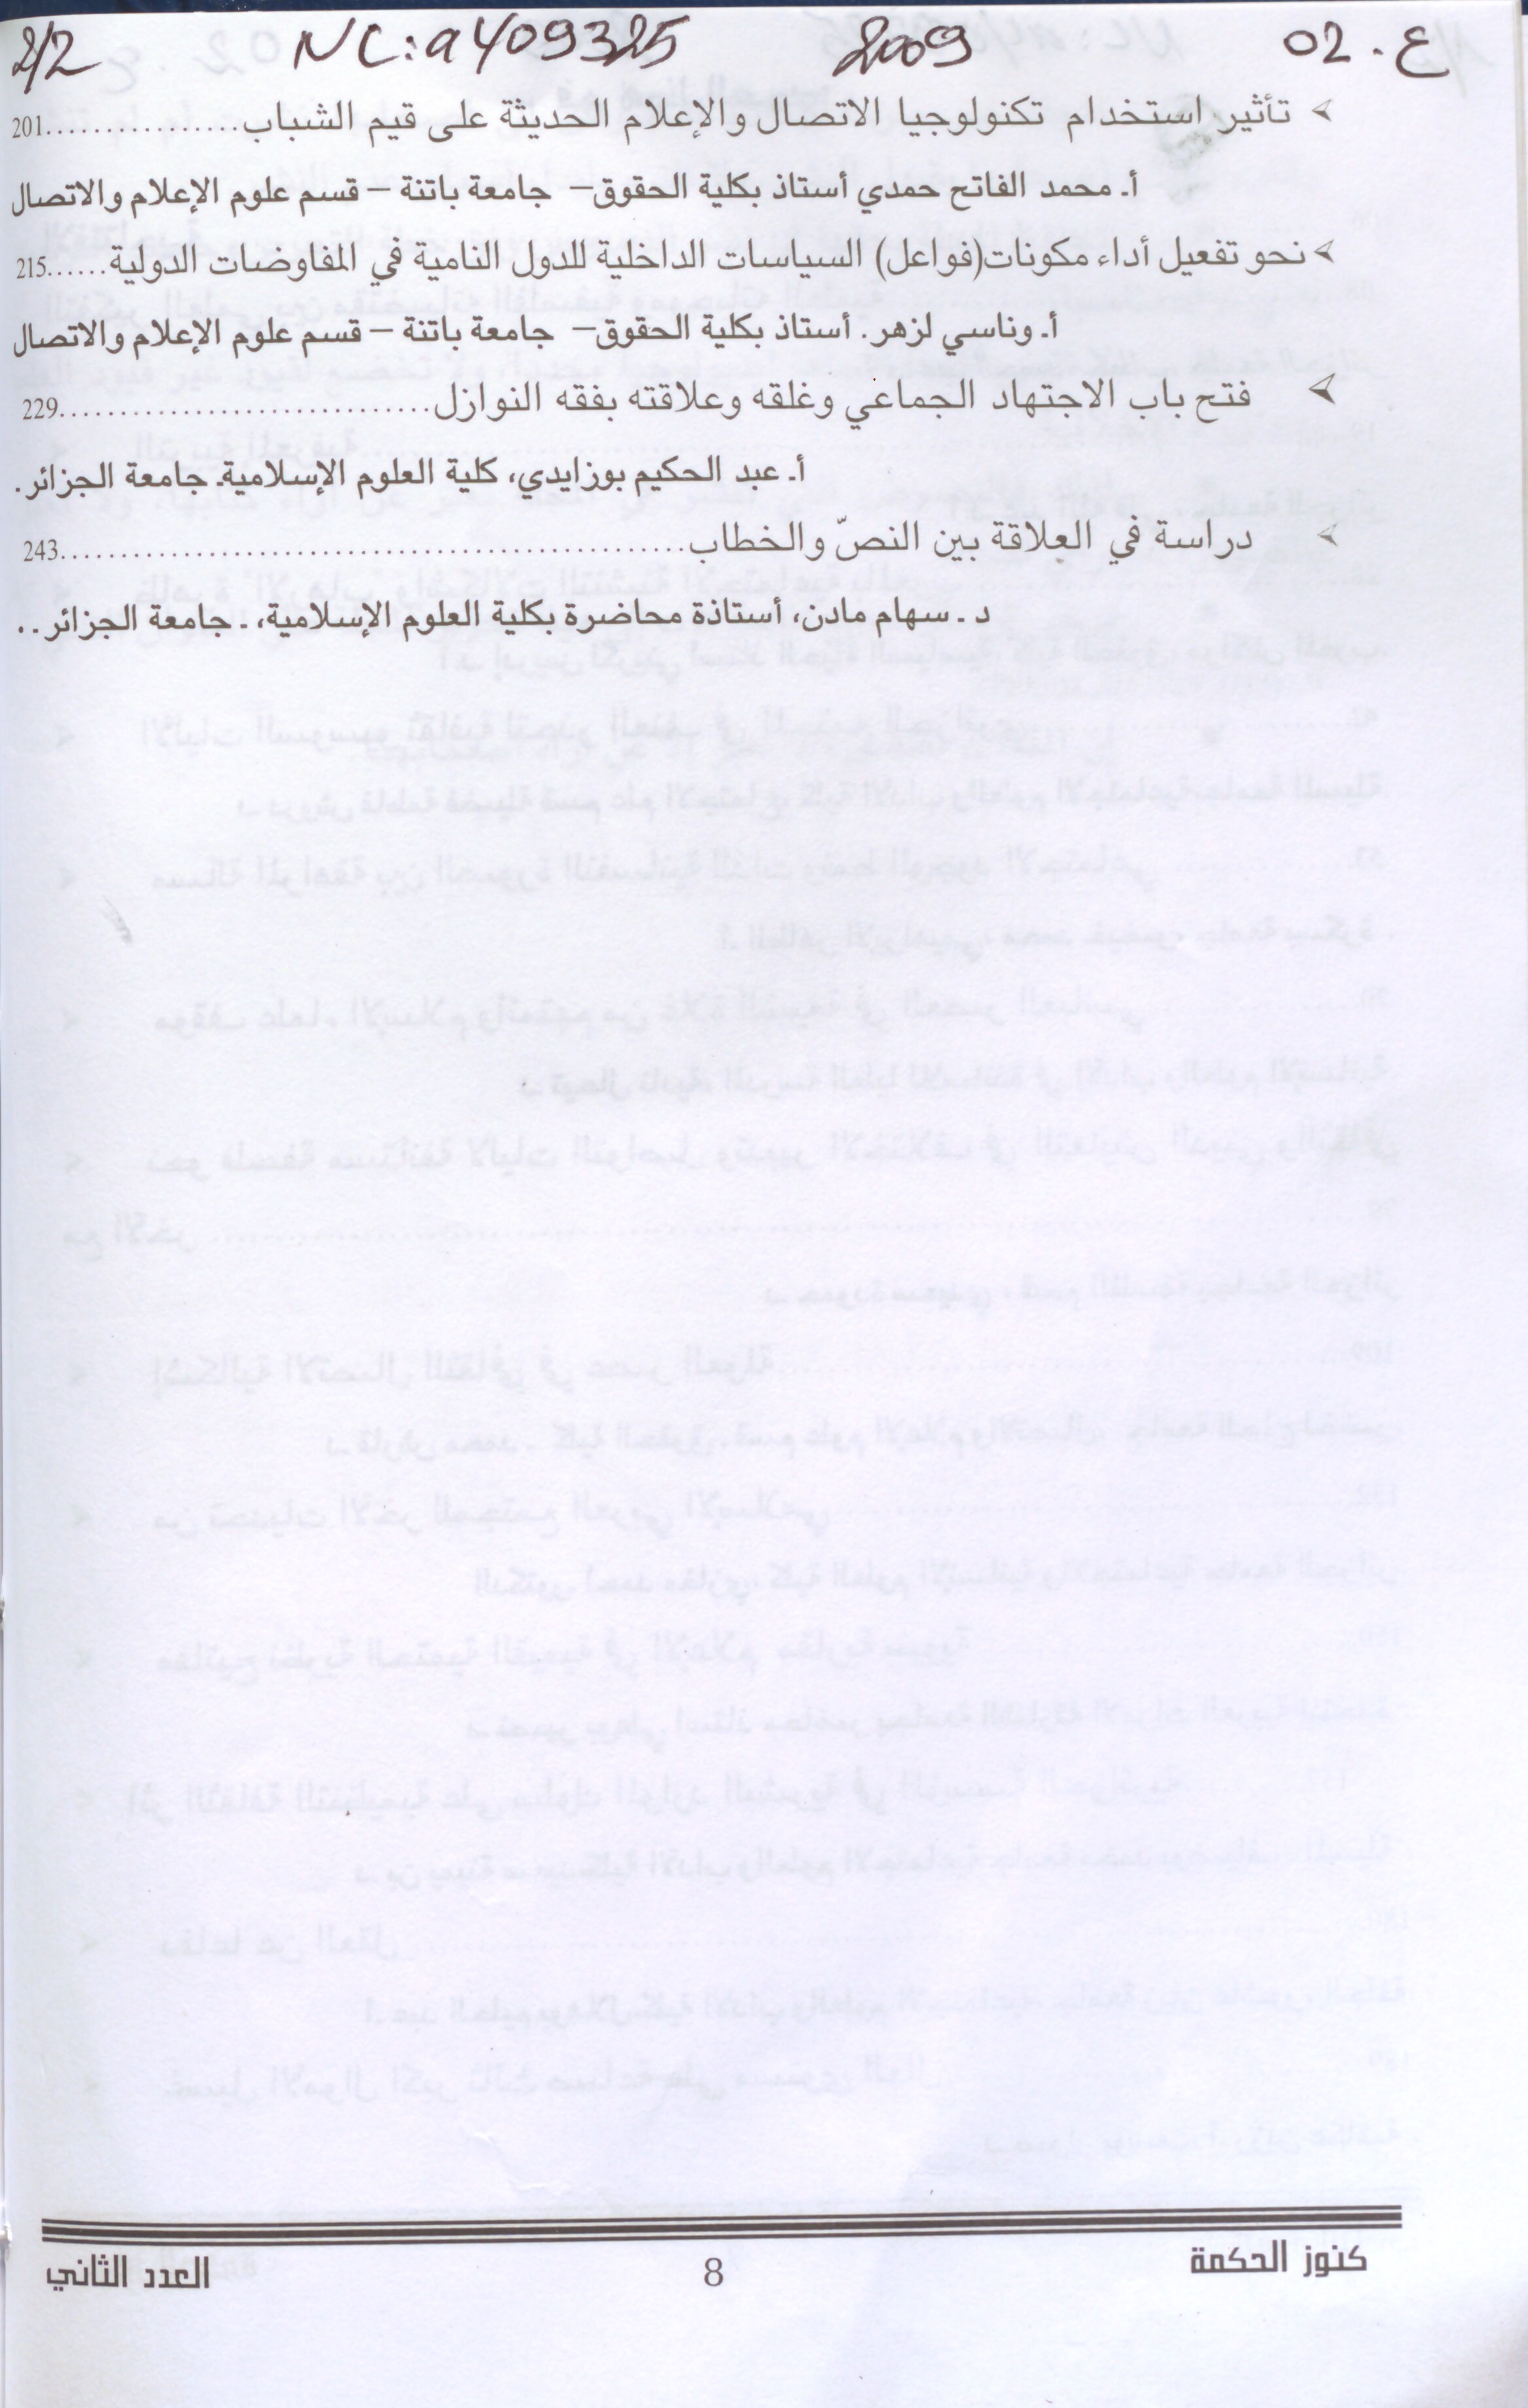 ع. 02 2009 NC: a409325 2/2
تأثير استخدام تكنولوجيا الاتصال والإعلام الحديثة على قيم الشباب................201
أ. محمد الفاتح حمدي أستاذ بكلية الحقوق– جامعة باتنة – قسم علوم الإعلام والاتصال
نحو تفعيل أداء مكونات(فواعل) السياسات الداخلية للدول النامية في المفاوضات الدولية......215
أ. وناسي لزهر. أستاذ بكلية الحقوق– جامعة باتنة – قسم علوم الإعلام والاتصال
فتح باب الاجتهاد الجماعي وغلقه وعلاقته بفقه النوازل...............................229
أ. عبد الحكيم بوزايدي، كلية العلوم الإسلامية. جامعة الجزائر.
دراسة في العلاقة بين النصّ والخطاب....................................................243
د. سهام مادن، أستاذة محاضرة بكلية العلوم الإسلامية،. جامعة الجزائر..
كنوز الحكمة 8 العدد الثاني